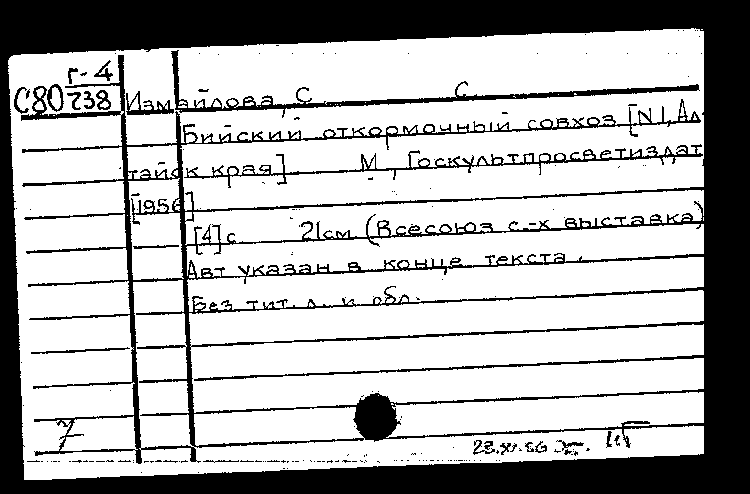 Г-4
С80 738
Измайлова, С С.
Бийский откормочный совхоз [N 1, Ал-
тайск края]. М., Госкультпросветиздат,
[1956]
[4] с. 21см (Всесоюз с.-х выставка)
Авт указан в конце текста.
Без тит. л. и обл.
7